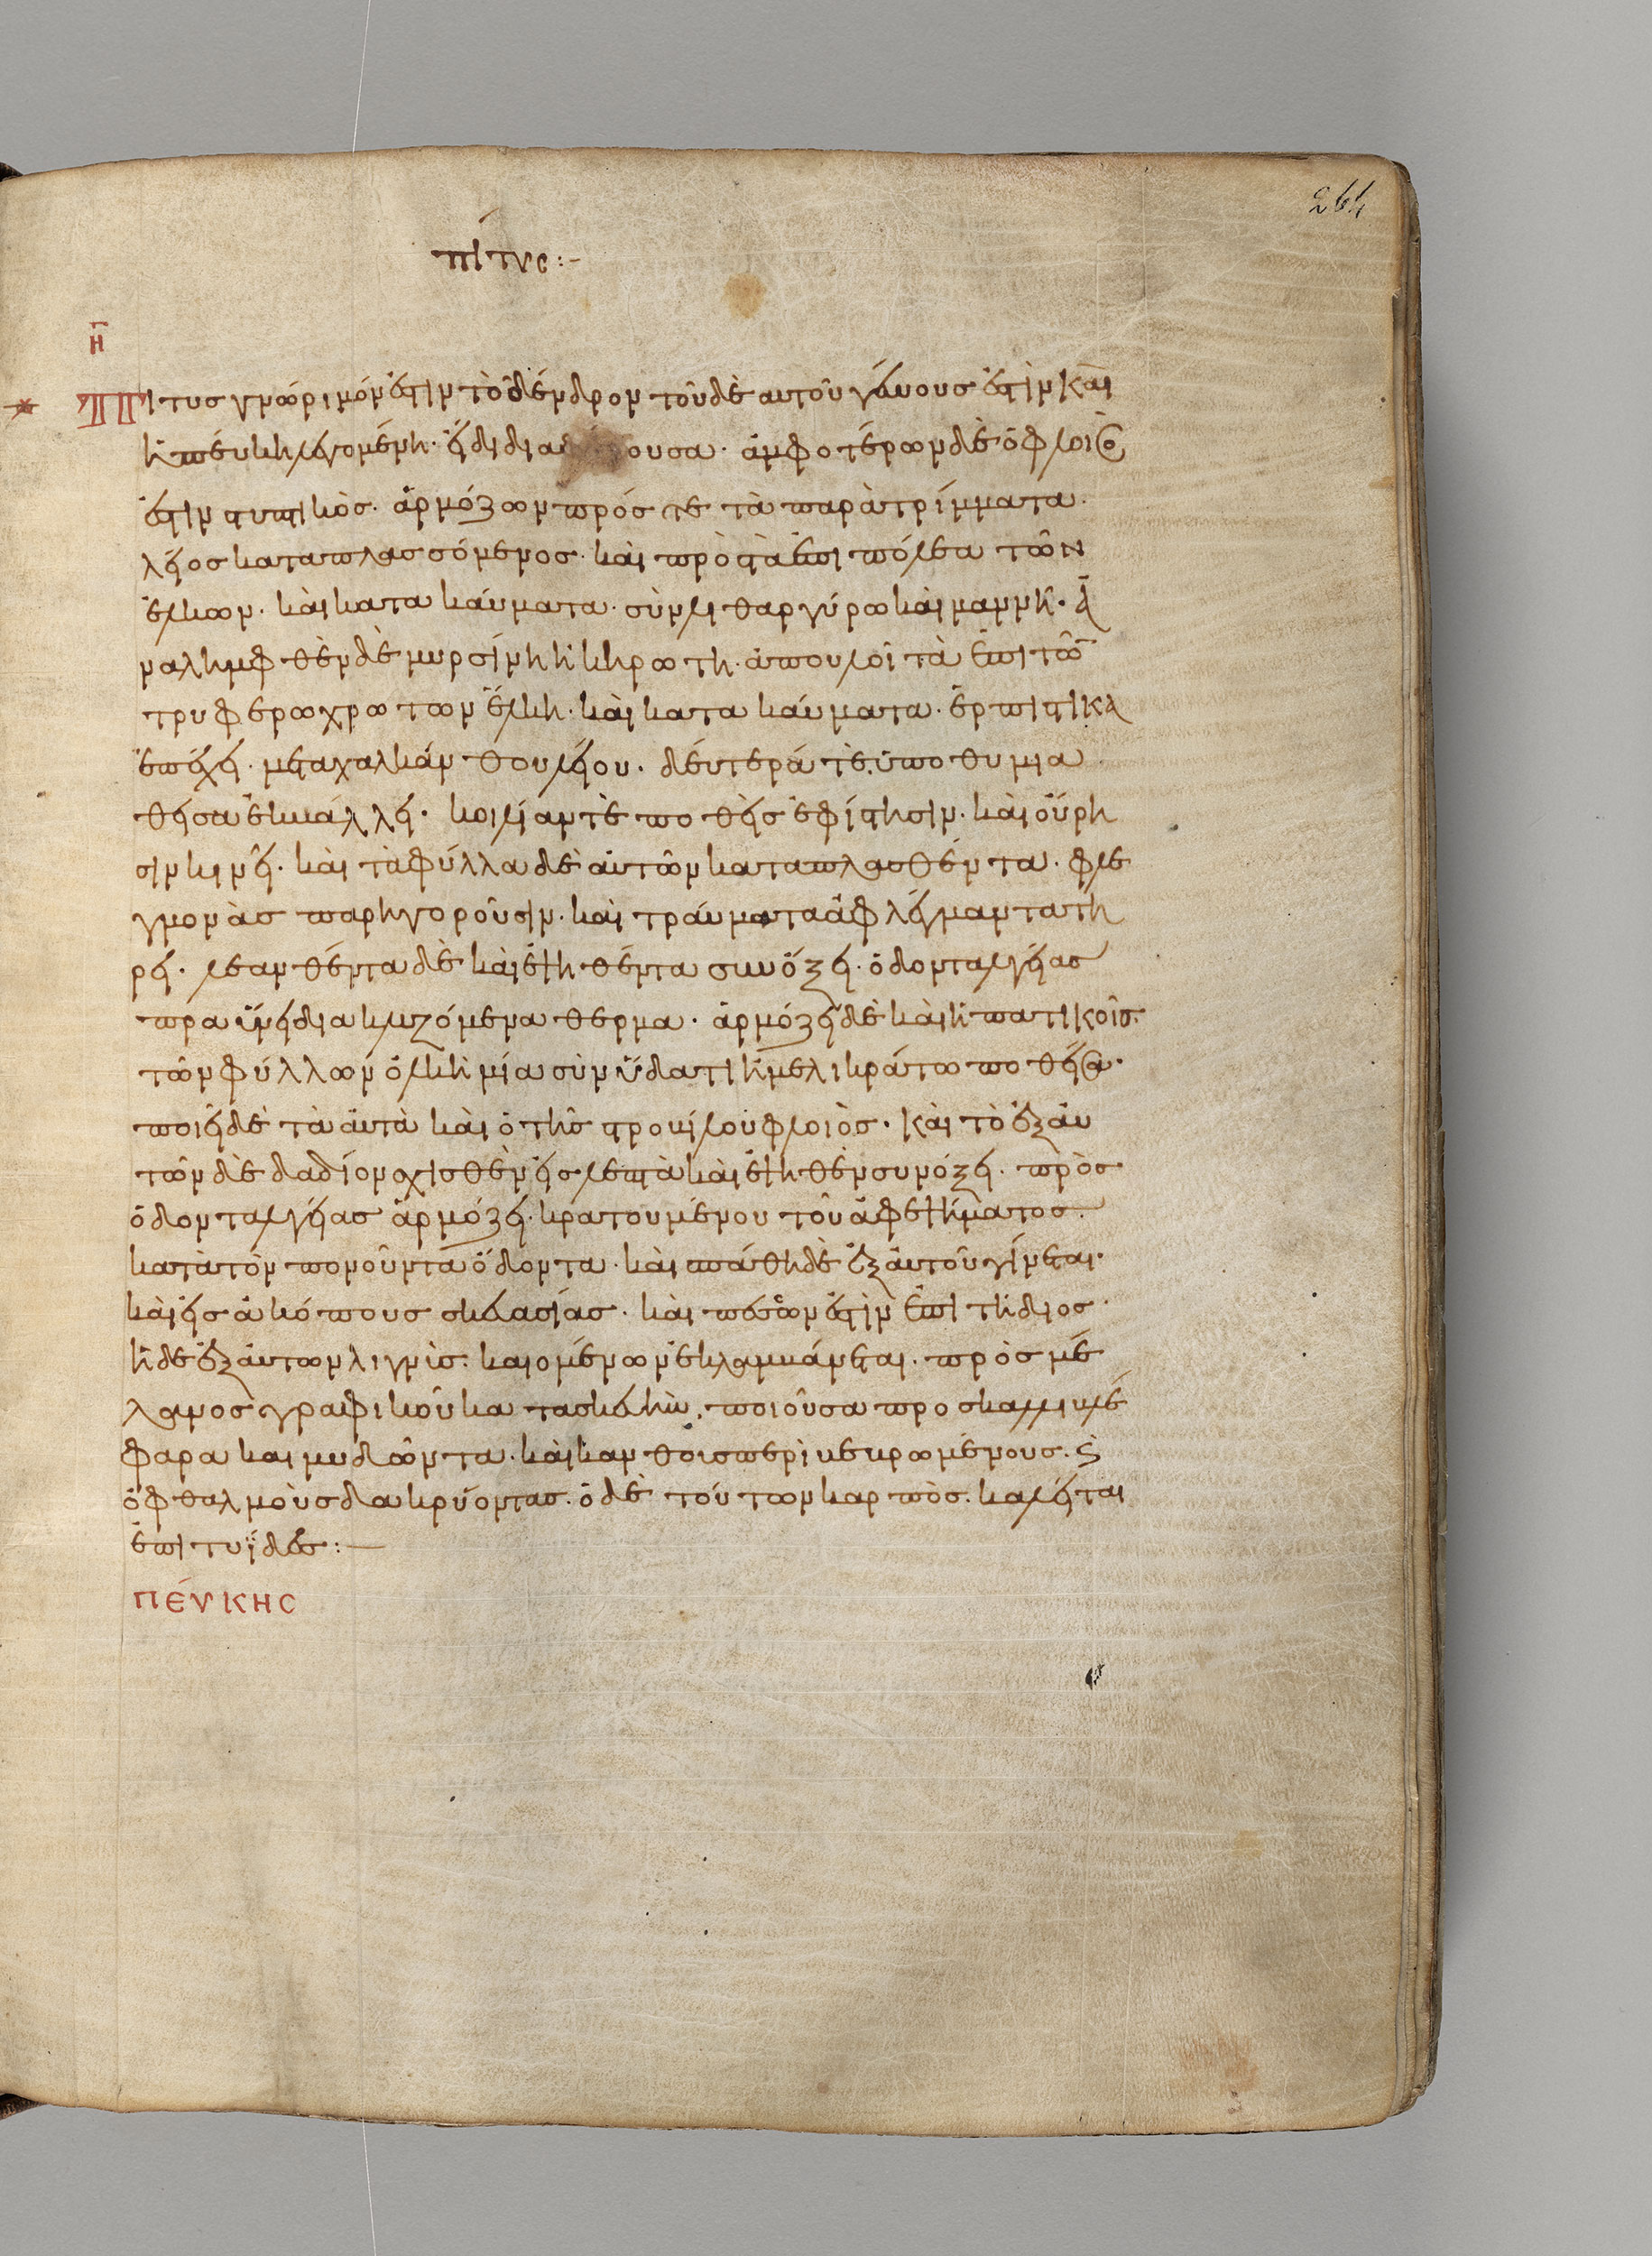 264
πίτυς:-
η̅
Πίτυς γνώριμόν ἐστιν τὸ δένδρον τοῦ δὲ αυτοῦ γένους ἐστὶν καὶ
ἡ πεύκη λεγομένη· εἴδι δια ουσα· ἀμφοτέρων δὲ ὁ φλοιὸς
ἐστιν στυπτικὸς· ἁρμόζων πρός τε τὰ παρατρίμματα·
λεῖος καταπλασσόμενος· καὶ πρὸς τὰ ἐπιπόλεα τῶν
ἑλκων· καὶ κατακαύματα· σὺν λιθαργύρω καὶ μαννη· ἀ
ναλημφθὲν δὲ μυρσίνη κηρωτη· ἀπουλοῖ τὰ ἐπὶ τῶ
τρυφερωχρωτων ἕλκη· καὶ κατακαύματα· ἑρπιστικὰ
ἐπέχει· μετα χαλκάνθου λείου· δεύτερά τε ὑποθυμια
θεῖσα ἐκβάλλει· κοιλίαν τε ποθεῖς ἐφίστησιν· καὶ οὔρη
σιν κινεῖ· καὶ τὰ φύλλα δὲ ἀυτῶν καταπλασθέντα· φλε
γμονὰς παρηγοροῦσιν· καὶ τράυματα ἀφλέγμαντα τη
ρεῖ· λεανθέντα δὲ καὶ ἑψηθέντα συν ὄξει· ὀδονταλγείας
πραΰνει διακλυζόμενα θερμα· ἁρμόζει δὲ καὶ ἡπατικοῖς·
τῶν φύλλων ὁλκὴ μία σὺν ὕδατι ἢ μελικράτω ποθεῖσα·
ποιεῖ δὲ τὰ ἀυτὰ καὶ ὁ τῆς στροβίλου φλοιὸς· καὶ τὸ ἐξ ἀυ
τῶν δὲ δαδίον σχισθὲν εἰς λεπτὰ καὶ ἑψηθὲν συν όξει· πρὸς
ὀδονταλγείας ἁρμόζει· κρατουμένου τοῦ ἀφεψήματος
κατὰ τὸν πονοῦντα ὄδοντα· καὶ σπάθη δὲ ἐξ ἀυτοῦ γίνεται·
καὶ εἰς ἀκόπους σκεασίας· καὶ πεσσῶν ἐστὶν ἐπιτήδιος·
ἡ δὲ ἐξ ἀυτων λιγνὺς· καιομένων ἐκλαμβάνεται· πρὸς μέ
λανος γραφικοῦ κατασκευὴν· ποιοῦσα προς καλλιβλέ
φαρα και μυδῶντα· καὶ κανθοις περὶβεβρωμένους· καὶ
ὀφθαλμοὺς δακρύοντας· ὁ δὲ τούτων καρπὸς· καλεῖται
ἐπιτυΐδες:—
ΠΕΥΚΗΣ